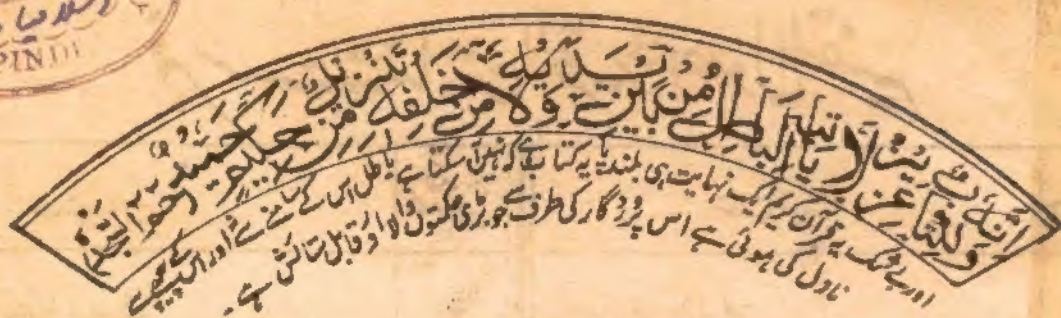 PINDI
وَإِنَّهٗ لَكِتَابٌ عَزِيزٌ لَّا يَأْتِيهِ الْبَاطِلُ مِنْ بَيْنِ يَدَيْهِ وَلَا مِنْ خَلْفِهٖ تَنْزِيلٌ مِّنْ حَكِيمٍ حَمِيدٍ
اور بے شک یہ قرآن کریم ایک نہایت ہی بلند پایہ کتاب ہے کہ نہیں آ سکتا ہے باطل اس کے سامنے سے اور نہ اس کے پیچھے سے
نازل کی ہوئی ہے اس پروردگار کی طرف سے جو بڑی حکمتوں والا اور قابل ستائش ہے۔